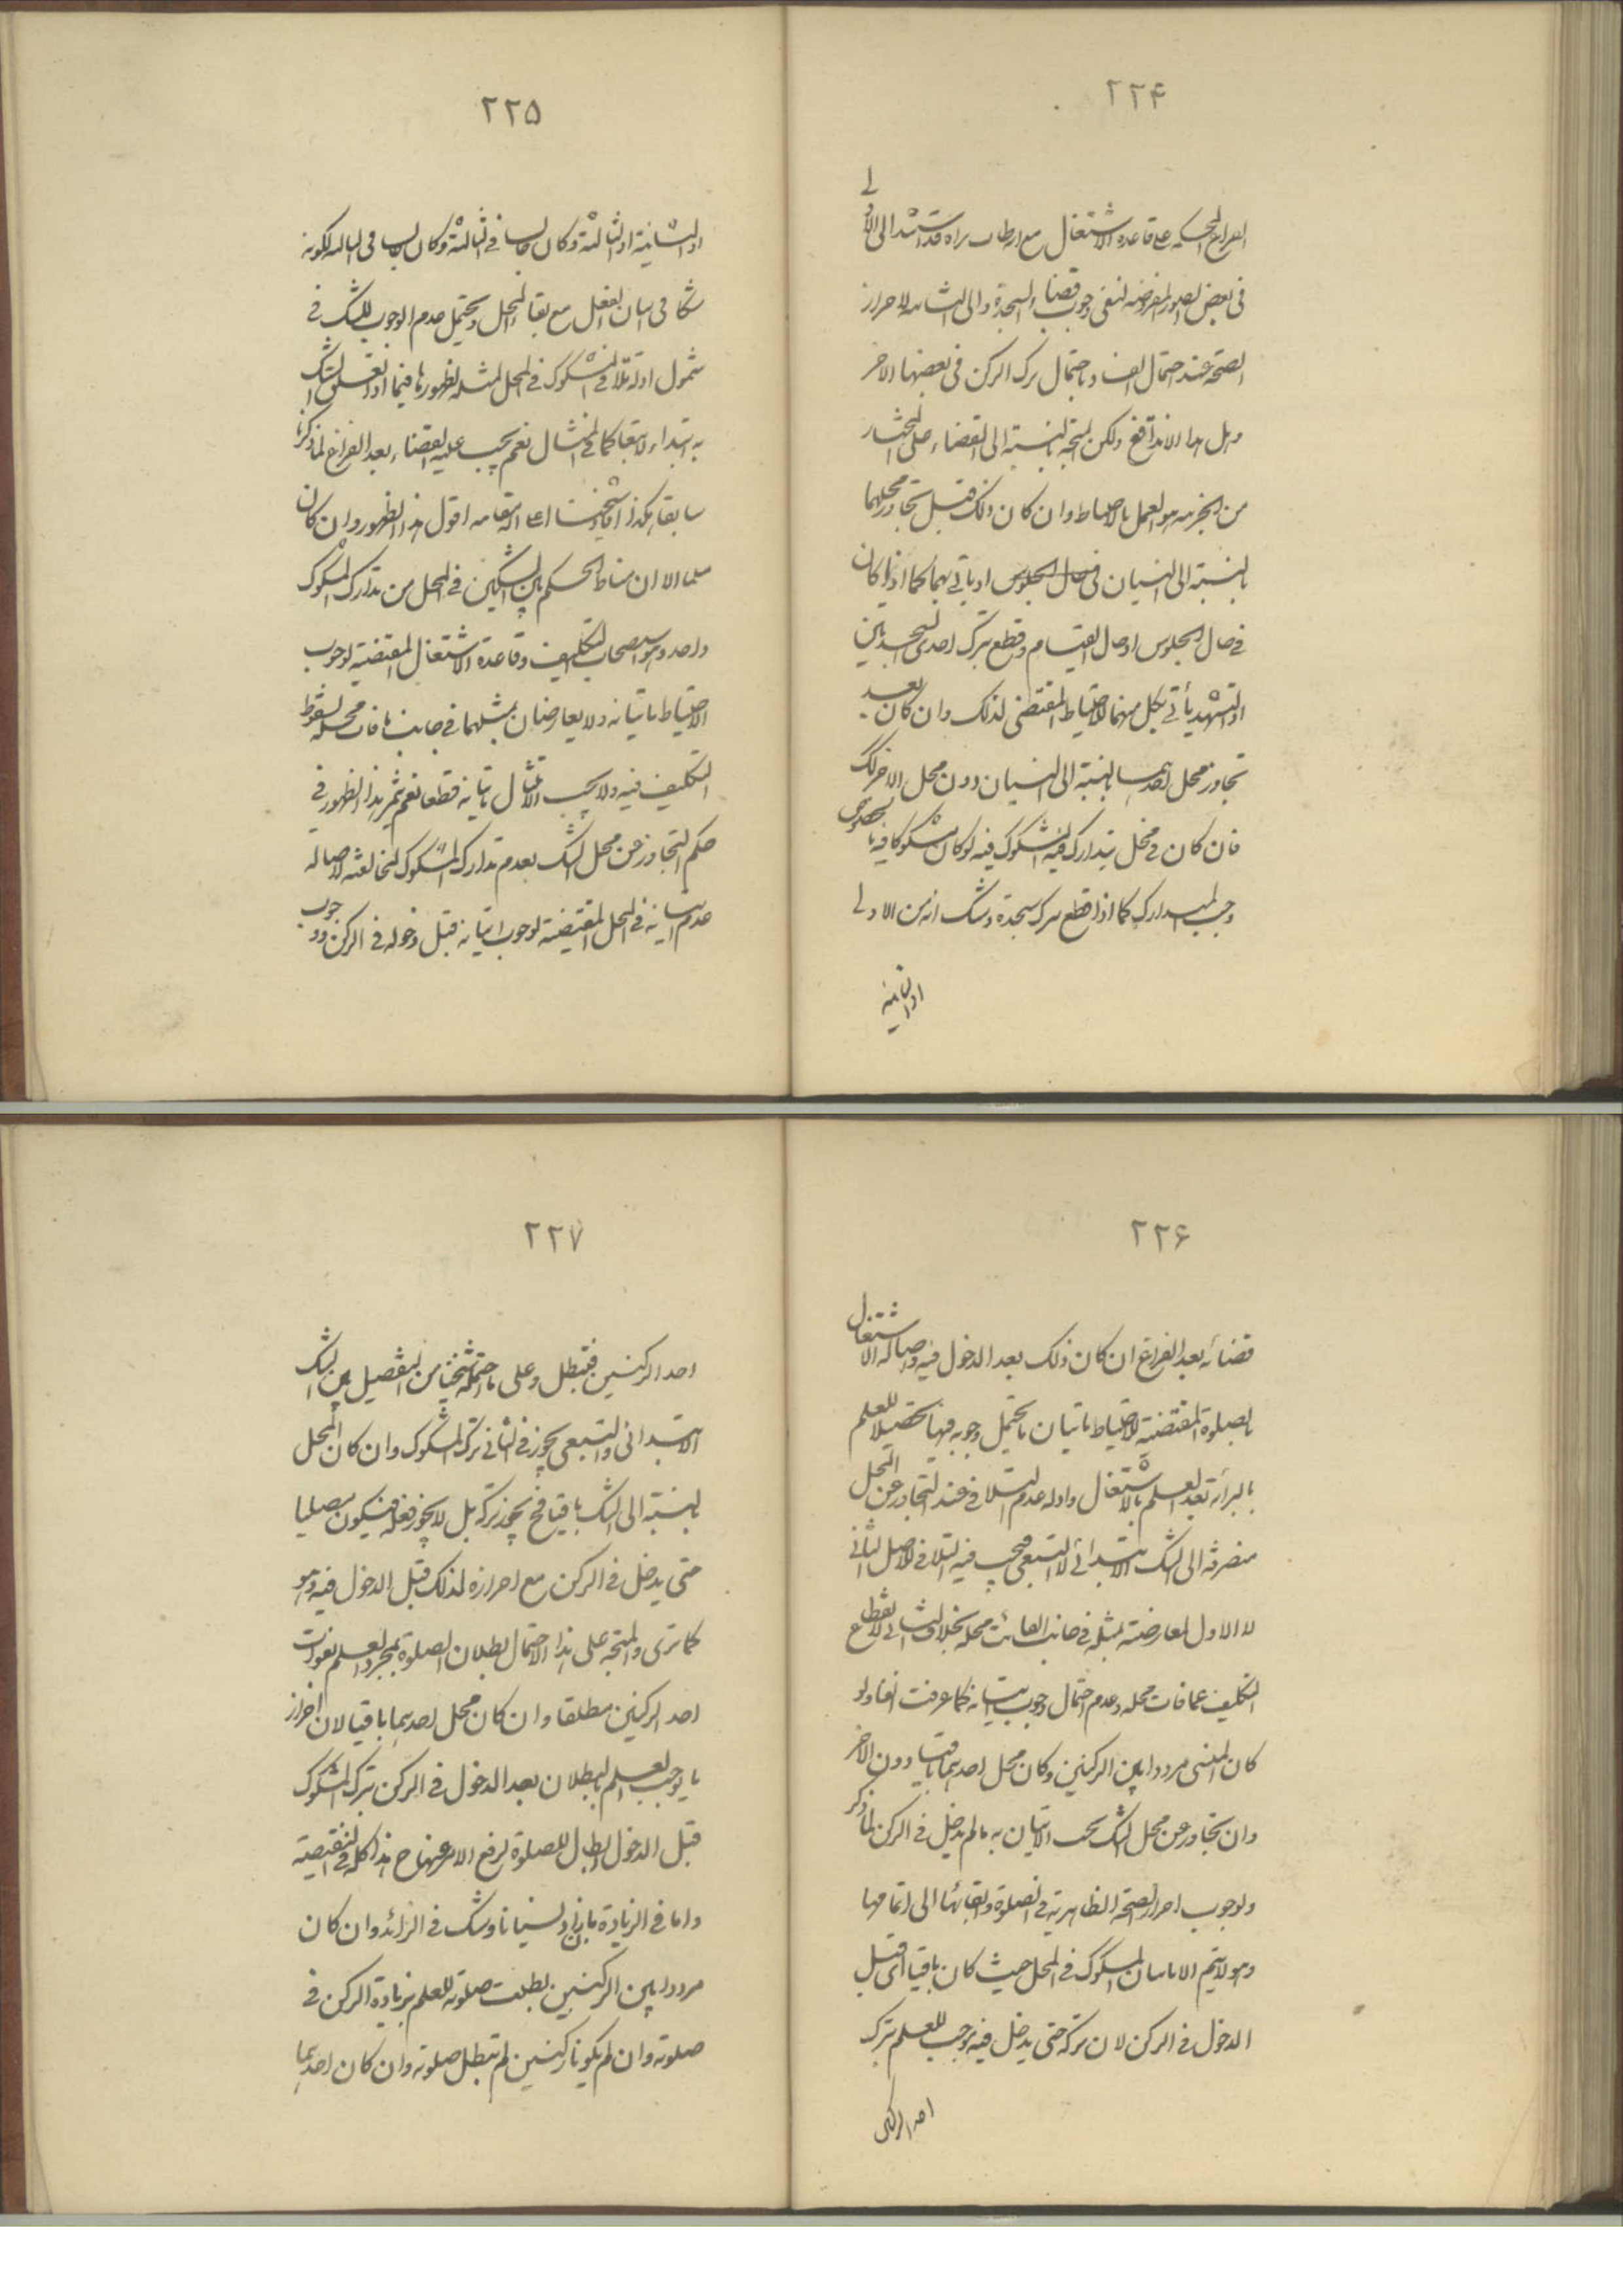 ۲۲۴
الفراغ الحاكمة على قاعدة الاشتغال مع قد استند الى الاولى
فى بعض الصور المفروضة لنفى وجوب قضاء السجدة والى الثانية لاحراز
الصحة عند احتمال الفساد باحتمال ترك الركن فى بعضها الاخر
وهل هذا الا تدافع ولكن المتجه بالنسبة الى القضاء على المختار
من هو العمل بالاحتياط وان كان ذلك قبل تجاوز محلهما
بالنسبة الى النسيان فى حال الجلوس او ياتى بهما كما اذا كان
فى حال الجلوس او حال القيام وقطع بترك احدى السجدتين
او التشهد يأتى بكل منهما للاحتياط المقتضى لذلك وان كان بعد
تجاوز محل احدهما بالنسبة الى النسيان دون محل الاخر لك
فان كان فى محل يتدارك فيه المشكوك فيه لو كان مشكوكا فيه بالخصوص
وجب التدارك كما اذا قطع بترك سجدة وشك انه من الاولى
او الثانية
۲۲۵
او الثانية او الثالثة وكان جالسا فى الثالثة وكان لكونه
شكا فى اتيان الفعل مع بقاء المحل ويحتمل عدم الوجوب للشك فى
شمول ادلة تلافى المشكوك فى المحل لمثله لظهورها فيما اذا تعلق الشك
به ابتداء لا تبعا كما فى المثال نعم يجب عليه القضاء بعد الفراغ لما ذكرنا
سابقا هكذا افاد شيخنا اعلى الله مقامه اقول هذا الظهور وان كان
مسلما الا ان مناط الحكم بين الشكين فى المحل من تدارك المشكوك
واحد وهو استصحاب التكليف وقاعدة الاشتغال المقتضية لوجوب
الاحتياط باتيانه ولا يعارضان بمثلهما فى جانب ما فات محله لسقوط
التكليف فيه ولا يجب الامتثال باتيانه قطعا نعم يثمر هذا الظهور فى
حكم التجاوز عن محل الشك بعدم تدارك المشكوك لمخالفته لاصالة
عدم اتيانه فى المحل المقتضية لوجوب اتيانه قبل دخوله فى الركن ووجوب
۲۲۶
قضائه بعد الفراغ ان كان ذلك بعد الدخول فيه واصالة الاشتغال
بالصلوة المقتضية للاحتياط باتيان ما يحتمل وجوبه فيها تحصيلا للعلم
بالبرائة بعد العلم بالاشتغال وادلة عدم التلافى عند التجاوز عن المحل
منصرفة الى الشك الابتدائى لا التبعى فيجب فيه التلافى للاصل الثانى
لا الاول لمعارضته بمثله فى جانب الفائت محله بخلاف الثانى لانقطاع
التكليف عما فات محله وعدم احتمال وجوب اتيانه كما عرفت انفا ولو
كان المنسى مرددا بين الركنين وكان محل احدهما باقيا دون الاخر
وان تجاوز عن محل الشك يجب الاتيان به ما لم يدخل فى الركن لما ذكر
ولوجوب احراز الصحة الظاهرية فى الصلوة وابقائها الى اتمامها
وهو لا يتم الا باتيان المشكوك فى المحل حيث كان باقيا اى قبل
الدخول فى الركن لان تركه حتى يدخل فيه يوجب للعلم بترك
احد الركنين
۲۲۷
احد الركنين فتبطل وعلى ما احتمله شيخنا من التفصيل بين الشك
الابتدائى والتبعى يجوز فى الثانى ترك المشكوك وان كان المحل
بالنسبة الى الشك باقيا فح يجوز تركه بل لا يجوز فعله فيكون مصليا
حتى يدخل فى الركن مع احرازه لذلك قبل الدخول فيه وهو
كما ترى والمتجه على هذا الاحتمال بطلان الصلوة بمجرد العلم بفوات
احد الركنين مطلقا وان كان محل احدهما باقيا لان احراز
ما يوجب العلم بالبطلان بعد الدخول فى الركن بترك المشكوك
قبل الدخول ابطال للصلوة لرفع الامر عنها ح هذا كله فى النقيصة
واما فى الزيادة بان زاد نسيانا وشك فى الزائد وان كان
مرددا بين الركنين بطلت صلوته للعلم بزيادة الركن فى
صلوته وان لم يكونا ركنين لم تبطل صلوته وان كان احدهما